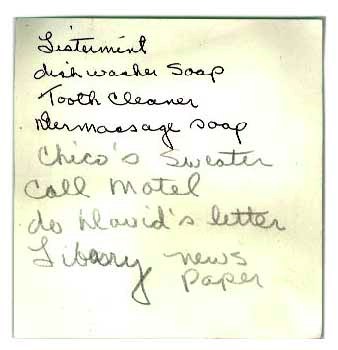 Listermint
dishwasher Soap
Tooth Cleaner
Dermassage soap
Chico's Sweater
Call Motel
do David's letter
Libary news
paper